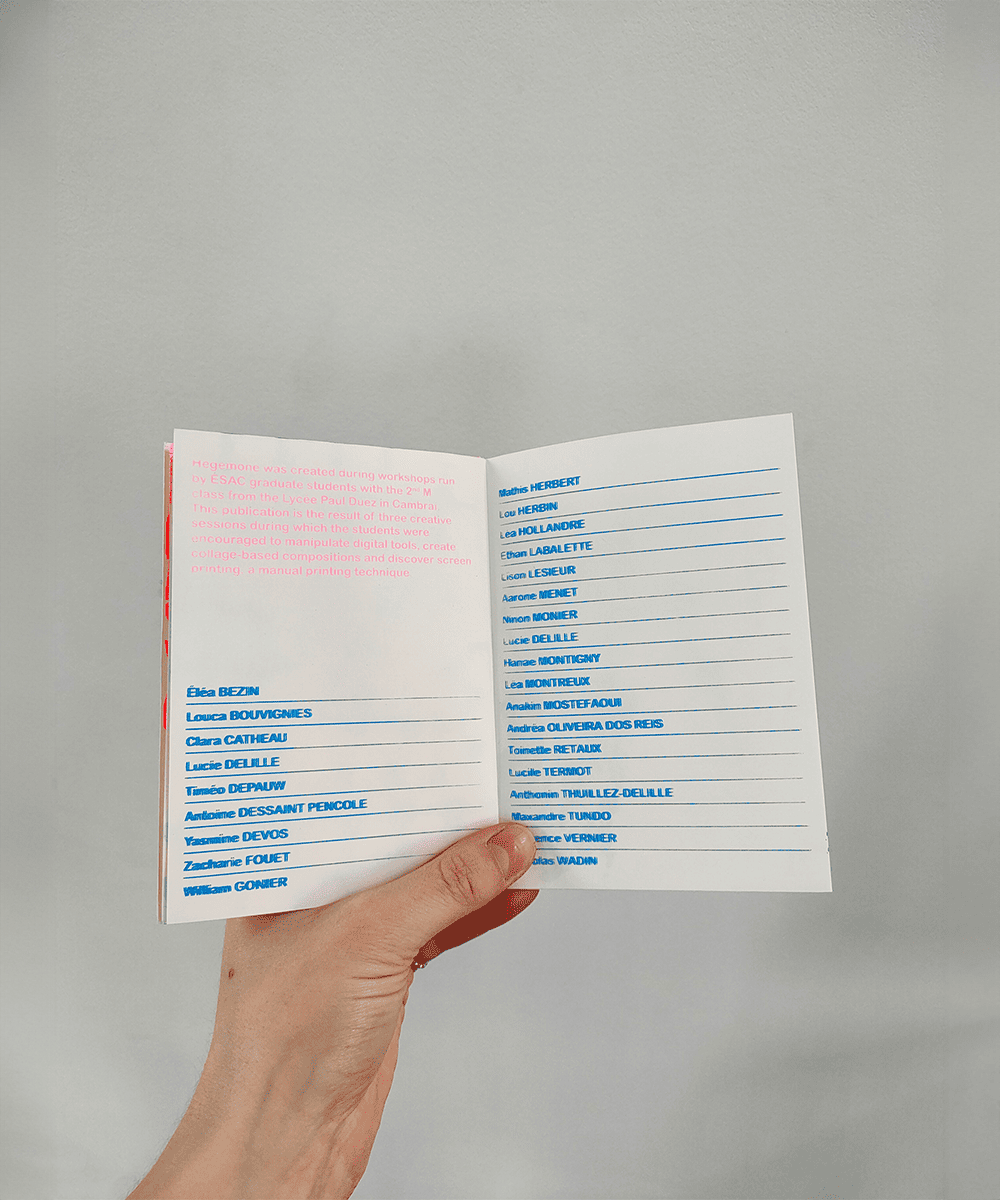 Hégémone was created during workshops run
by ÉSAC graduate students with the 2ⁿᵈ M
class from the Lycée Paul Duez in Cambrai.
This publication is the result of three creative
sessions during which the students were
encouraged to manipulate digital tools, create
collage-based compositions and discover screen
printing, a manual printing technique.
Éléa BEZIN
Louca BOUVIGNIES
Clara CATHEAU
Lucie DELILLE
Timéo DEPAUW
Antoine DESSAINT PENCOLE
Yasmine DEVOS
Zacharie FOUET
William GONIER
Mathis HERBERT
Lou HERBIN
Léa HOLLANDRE
Ethan LABALETTE
Lison LESIEUR
Aarone MENET
Ninon MONIER
Lucie DELILLE
Hanae MONTIGNY
Léa MONTREUX
Anakim MOSTEFAOUI
Andréa OLIVEIRA DOS REIS
Toinette RETAUX
Lucile TERMOT
Anthonin THUILLEZ-DELILLE
Maxandre TUNDO
VERNIER
WADIN